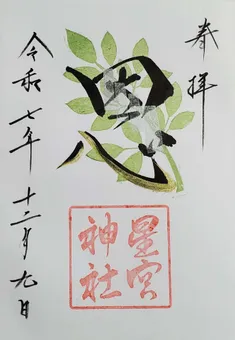 奉拝
星宮
神社
令和七年十二月九日